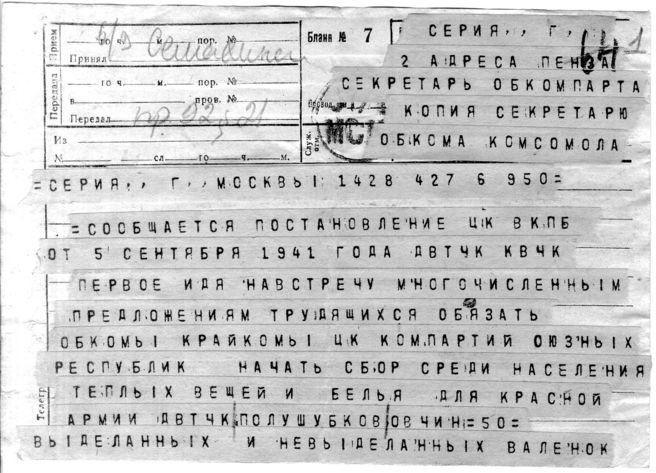 Прием
го ч. м. пор. №
Принял
Передача
го ч. м. пор. №
в. пров. №
Передал
Из
№ сл. го ч. м.
Служ. отм.
Бланк № 7
СЕРИЯ,, Г,
2 АДРЕСА ПЕНЗА
СЕКРЕТАРЬ ОБКОМПАРТА
КОПИЯ СЕКРЕТАРЮ
ОБКОМА КОМСОМОЛА
=СЕРИЯ,, Г,, МОСКВЫ 1428 427 6 950=
=СООБЩАЕТСЯ ПОСТАНОВЛЕНИЕ ЦК ВКПБ
ОТ 5 СЕНТЯБРЯ 1941 ГОДА ДВТЧК КВЧК
ПЕРВОЕ ИДЯ НАВСТРЕЧУ МНОГОЧИСЛЕННЫМ
ПРЕДЛОЖЕНИЯМ ТРУДЯЩИХСЯ ОБЯЗАТЬ
ОБКОМЫ КРАЙКОМЫ ЦК КОМПАРТИЙ ОЮЗНЫХ
РЕСПУБЛИК НАЧАТЬ СБОР СРЕДИ НАСЕЛЕНИЯ
ТЕПЛЫХ ВЕЩЕЙ И БЕЛЬЯ ДЛЯ КРАСНОЙ
АРМИИ ДВТЧК ПОЛУШУБКОВ ОВЧИН=50=
ВЫДЕЛАННЫХ И НЕВЫДЕЛАННЫХ ВАЛЕНОК